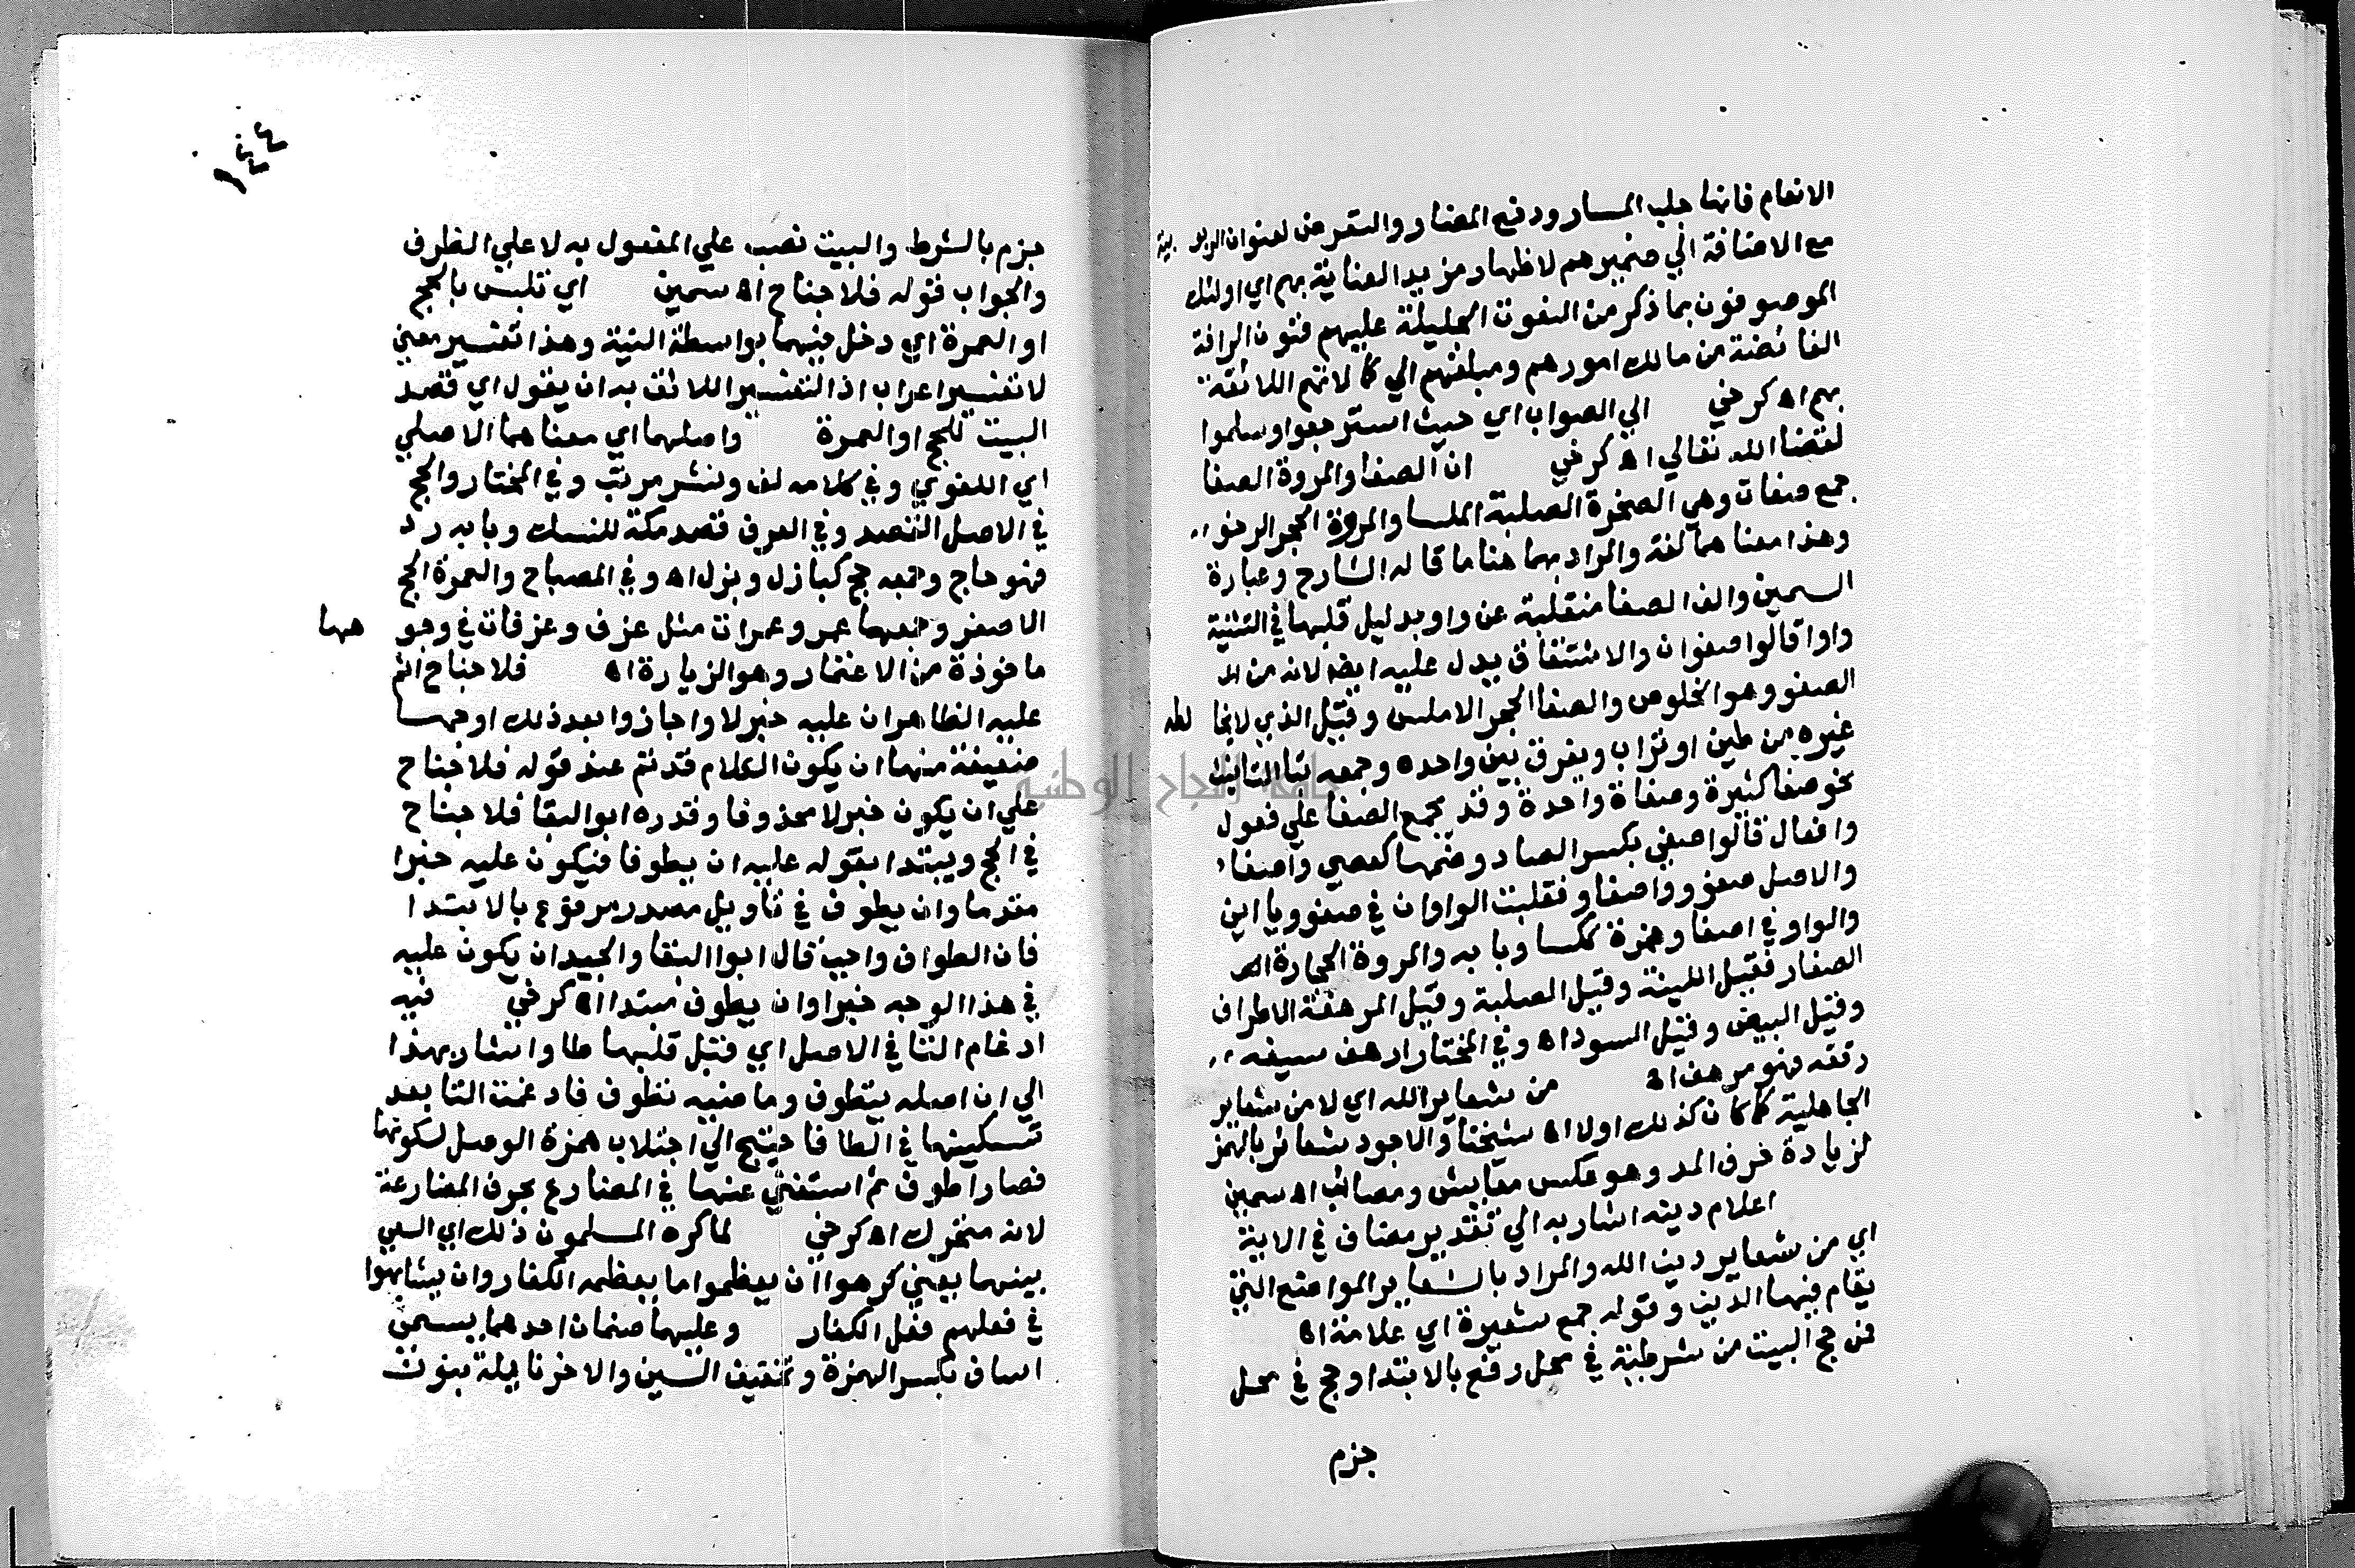 الانعام فانها جلب المسار ودفع المضار والتعرض لعنوان الربو بية
مع الاضافة الي ضميرهم لاظهار مزيد العناية بهم اي اولئك
الموصوفون بما ذكر من النعوت الجليلة عليهم فنون الرافة
الفائضة من مالك امورهم ومبلغهم الي كمالاتهم اللائقة
بهم اه كرخي الي الصواب اي حيث استرجعوا وسلموا
لقضا الله تعالي اه كرخي ان الصفا والمروة الصفا
جمع صفات وهي الصخرة الصلبة الملسا والمروة الحجر الرخو
وهذا معناهما لغة والمراد بهما هنا ما قاله الشارح وعبارة
السمين والف الصفا منقلبة عن واو بدليل قلبها في التثنية
واوا قالوا صفوان والاشتقاق يدل عليه ايضا لانه من
الصفو وهو الخلوص والصفا الحجر الاملس وقيل الذي لا يخا لطه
غيره من طين او تراب ويفرق بين واحده وجمعه تا التانيث
نحو صفا كثيرة وصفاة واحدة وقد يجمع الصفا علي فعول
وافعال قالوا صفي بكسر الصاد وضمها كعصي واصفا
والاصل صفوو واصفاو فقلبت الواوان في صفوو ياين
والواو في اصفاو همزة ككسا وبابه والمروة الحجارة
الصغار فقيل اللينة وقيل الصلبة وقيل المرهفة الاطراف
وقيل البيض وقيل السود اه وفي المختار ارهف سيفه
رققه فهو مرهف اه من شعاير الله اي لا من شعاير
الجاهلية كما كان كذلك اولا اه شيخنا والاجود شعائر بالهمز
لزيادة حرف المد وهو عكس معايش ومصائب اه سمين
اعلام دينه اشار به الي تقدير مضاف في الاية
اي من شعاير دين الله والمراد بالشعاير المواضع التي
يقام فيها الدين وقوله جمع شعيرة اي علامة اه
فمن حج البيت من شرطية في محل رفع بالابتدا وحج في محل
جزم
١٤٤
جزم بالشرط والبيت نصب علي المفعول به لا علي الظرف
والجواب قوله فلا جناح اه سمين اي تلبس بالحج
او العمرة اي دخل فيهما بواسطة النية وهذا تفسير معني
لا تفسير اعراب اذ التفسير اللائق به ان يقول اي قصد
البيت للحج او العمرة واصلهما اي معناهما الاصلي
اي اللغوي وفي كلامه لف ونشر مرتب وفي المختار والحج
في الاصل القصد وفي العرف قصد مكة للنسك وبابه رد
فهو حاج وجمعه حج كبازل وبزل اه وفي المصباح والعمرة الحج
الاصغر وجمعها عمر وعمرات مثل غرف وغرفات في وجو هها
ماخوذة من الاعتمار وهو الزيارة اه فلا جناح اثم
عليه الظاهر ان عليه خبر لا واجازوا بعد ذلك اوجها
ضعيفة منها ان يكون الكلام قد تم عند قوله فلا جناح
علي ان يكون خبر لا محذوفا وقدره ابو البقا فلا جناح
في الحج ويبتدا بقوله عليه ان يطوفا فيكون عليه خبرا
مقدما وان يطوف في تاويل مصدر مرفوع بالابتدا
فان الطواف واجب قال ابوا البقا والجيد ان يكون عليه
في هذا الوجه خبرا وان يطوف مبتدا اه كرخي فيه
ادغام التا في الاصل اي قبل قلبها طا واشار بهذا
الي ان اصله يتطوف وماضيه تطوف فادغمت التا بعد
تسكينها في الطا فاحتيج الي اجتلاب همزة الوصل لسكونها
فصار اطوف ثم استغني عنها في المضارع بحرف المضارعة
لانه متحرك اه كرخي لما كره المسلمون ذلك اي السعي
بينهما يعني كرهوا ان يعظموا ما يعظمه الكفار وان يشابهوا
في فعلهم فعل الكفار وعليهما صنمان احدهما يسمي
اساف بكسر الهمزة وتخفيف السين والاخر نايلة بنون
جامعة النجاح الوطنية